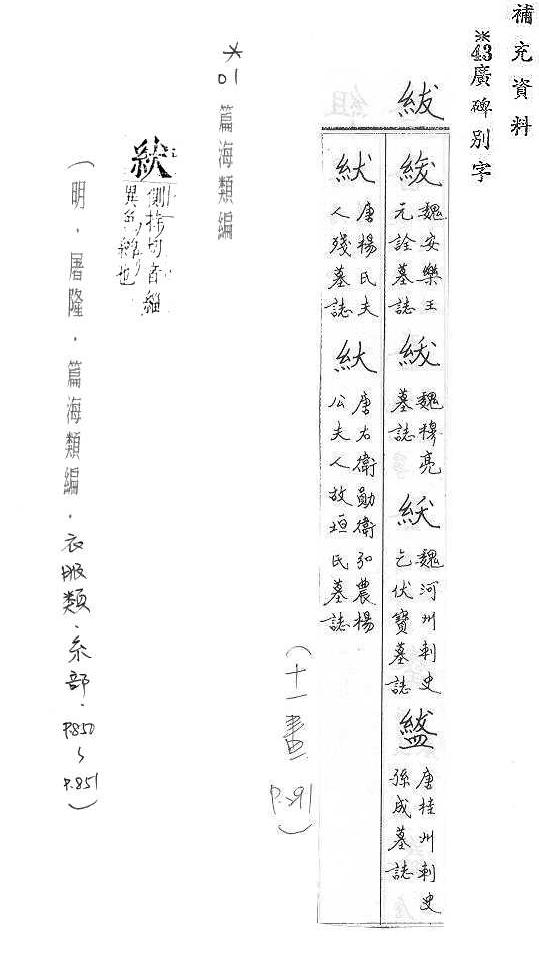 補充資料
※43廣碑別字
紱
魏安樂王
元詮墓誌
魏穆亮
墓誌
魏河州刺史
乞伏寶墓誌
唐桂州刺史
孫成墓誌
唐楊氏夫
人殘墓誌
唐右衛勛衛弘農楊
公夫人故垣氏墓誌
(十一畫 P.291)
*01 篇海類編
側持切音緇
異色繒也
(明．屠隆．篇海類編．衣服類．糸部．P850~P.851)